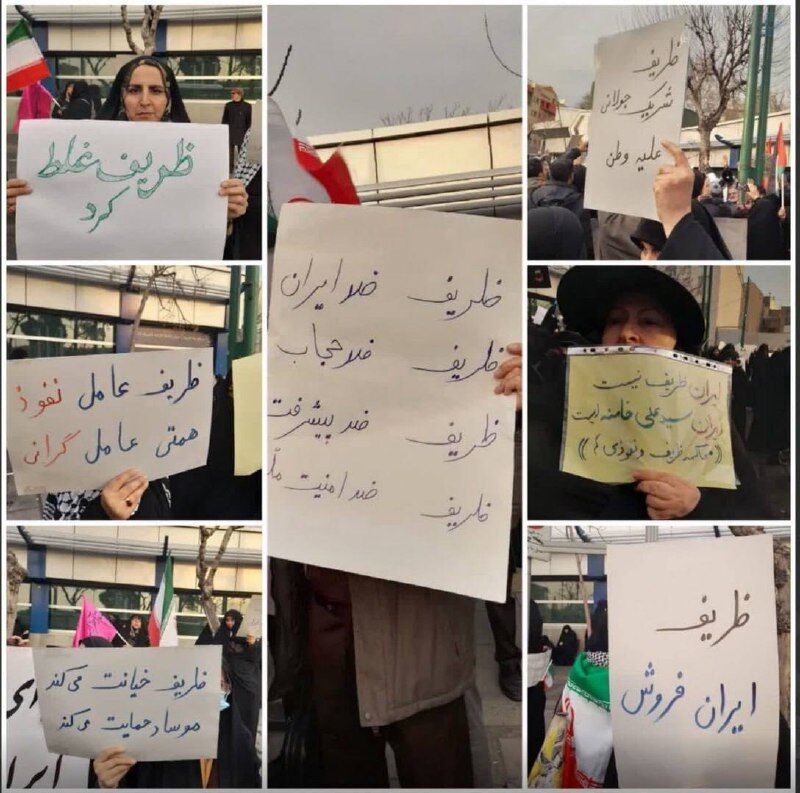 ظریف غلط
کرد
ظریف ضد ایران
ظریف ضد حجاب
ظریف ضد پیشرفت
ظریف ضد امنیت
ظریف
شریک جولانی
علیه وطن
ظریف عامل نفوذ
همتی عامل گرانی
ایران ظریف نیست
ایران سید علی خامنه ایست
((محاکمه ظریف و نفوذی ها))
ظریف خیانت می کند
موساد حمایت می کند
ظریف
ایران فروش